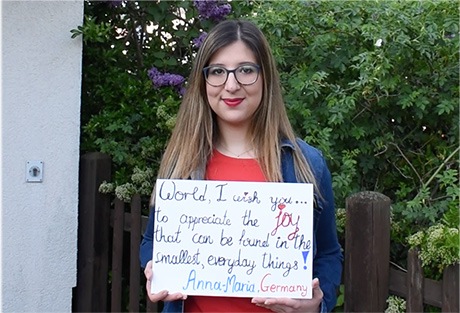 World, I wish you...
to appreciate the joy
that can be found in the
smallest, everyday things!
Anna-Maria, Germany